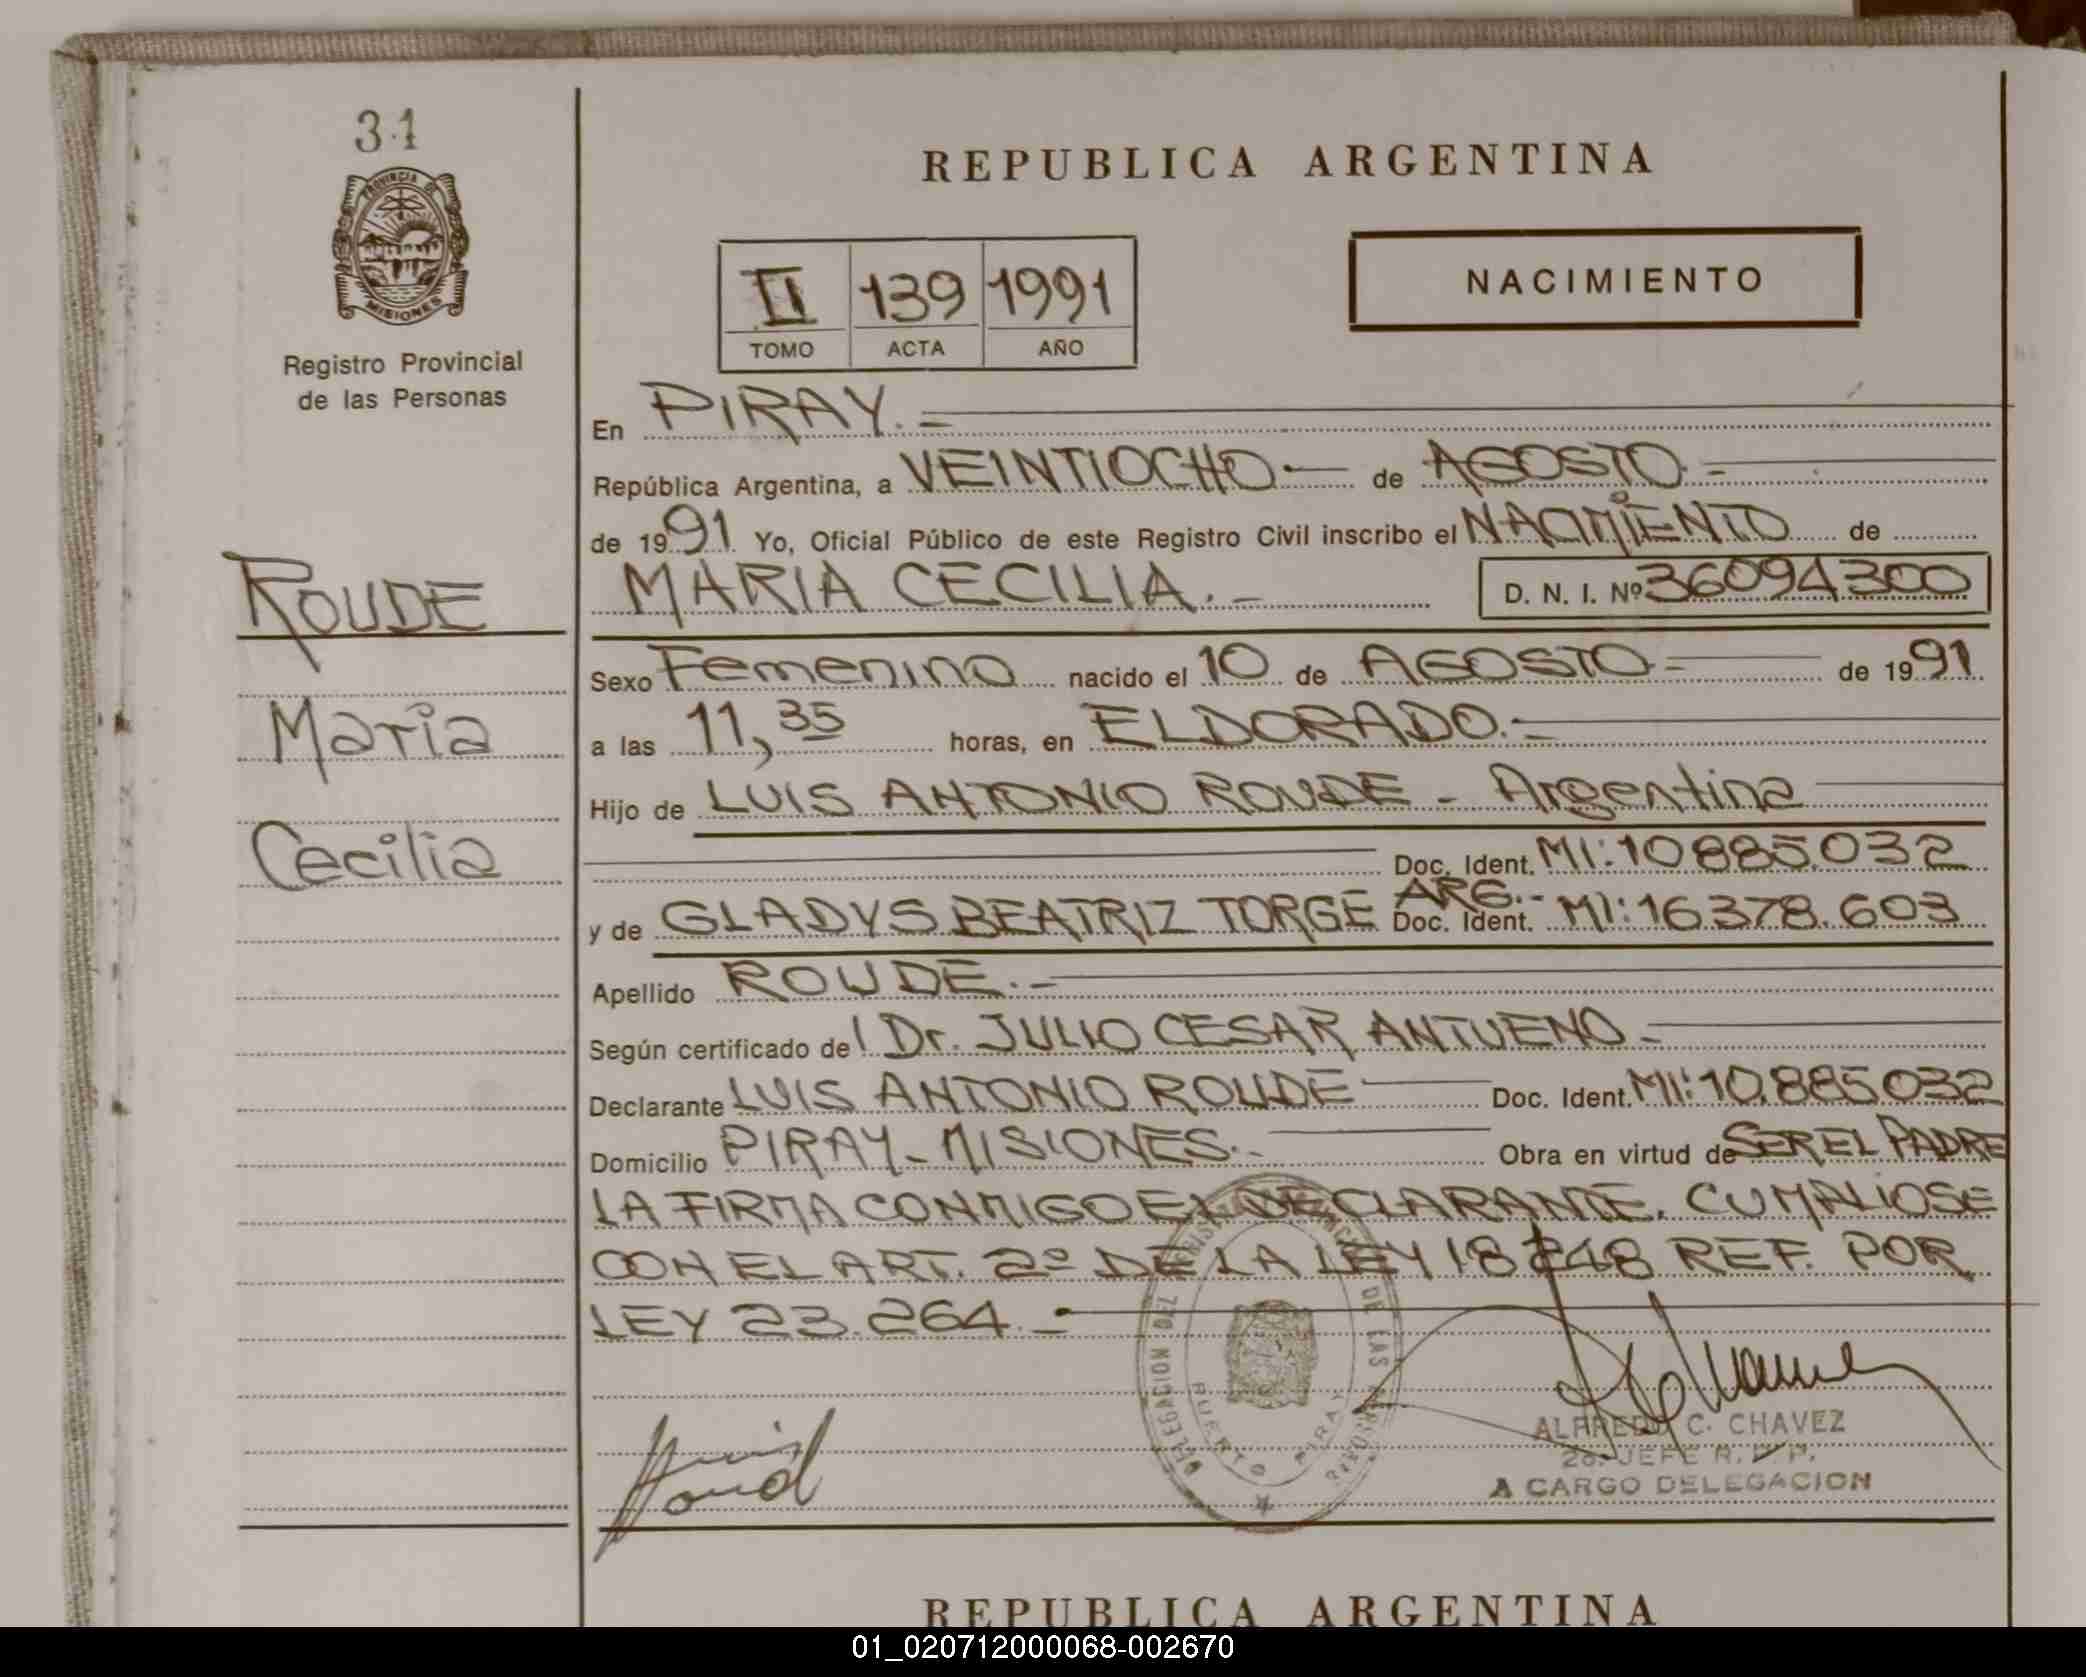 31
PROVINCIA DE
MISIONES
Registro Provincial
de las Personas
ROUDE
Maria
Cecilia
REPUBLICA ARGENTINA
II 139 1991
TOMO ACTA AÑO
NACIMIENTO
En PIRAY.-
República Argentina, a VEINTIOCHO.- de AGOSTO.-
de 1991 Yo, Oficial Público de este Registro Civil inscribo el NACIMIENTO de
MARIA CECILIA.- D. N. I. Nº 36094300
Sexo Femenino nacido el 10 de AGOSTO.- de 1991
a las 11,35 horas, en ELDORADO.-
Hijo de LUIS ANTONIO ROUDE - Argentina
Doc. Ident. MI:10885.032
ARG.-
y de GLADYS BEATRIZ TORGE Doc. Ident. MI:16378.603
Apellido ROUDE.-
Según certificado del Dr. JULIO CESAR ANTUENO -
Declarante LUIS ANTONIO ROUDE Doc. Ident. MI:10.885032
Domicilio PIRAY - MISIONES.- Obra en virtud de SER EL PADRE
LA FIRMA CONMIGO EL DECLARANTE. CUMPLIOSE
CON EL ART. 2º DE LA LEY 18248 REF. POR
LEY 23.264.-
DELEGACION DEL DE LAS
PUERTO PIRAY
ALFREDO C. CHAVEZ
2o. JEFE R. P. P.
A CARGO DELEGACION
REPUBLICA ARGENTINA
01_020712000068-002670